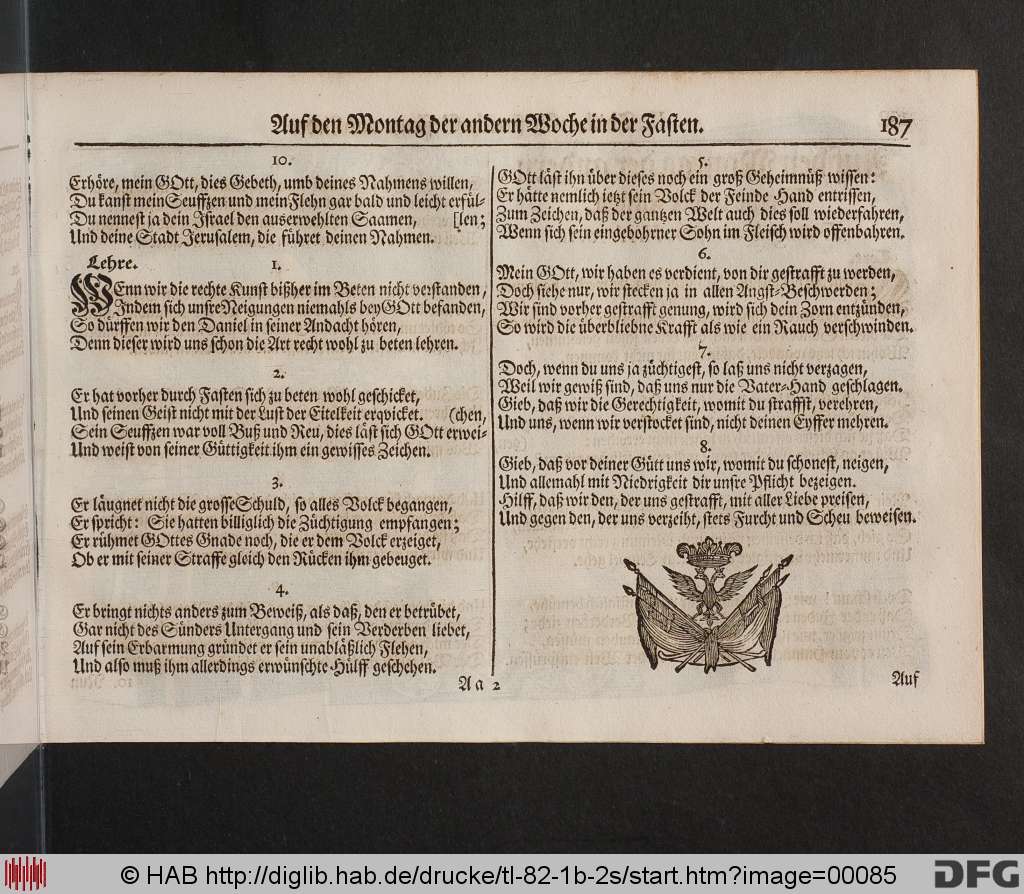 Auf den Montag der andern Woche in der Fasten. 187
10.
Erhöre, mein GOtt, dies Gebeth, umb deines Nahmens willen,
Du kanst mein Seuffzen und mein Flehn gar bald und leicht erfül-
Du nennest ja dein Israel den auserwehlten Saamen, [len;
Und deine Stadt Jerusalem, die führet deinen Nahmen.
Lehre. 1.
WEnn wir die rechte Kunst bißher im Beten nicht verstanden,
Indem sich unsre Neigungen niemahls bey GOtt befanden,
So dürffen wir den Daniel in seiner Andacht hören,
Denn dieser wird uns schon die Art recht wohl zu beten lehren.
2.
Er hat vorher durch Fasten sich zu beten wohl geschicket,
Und seinen Geist nicht mit der Lust der Eitelkeit erqvicket. (chen,
Sein Seuffzen war voll Buß und Reu, dies läst sich GOtt erwei-
Und weist von seiner Güttigkeit ihm ein gewisses Zeichen.
3.
Er läugnet nicht die grosse Schuld, so alles Volck begangen,
Er spricht: Sie hatten billiglich die Züchtigung empfangen;
Er rühmet GOttes Gnade noch, die er dem Volck erzeiget,
Ob er mit seiner Straffe gleich den Rücken ihm gebeuget.
4.
Er bringt nichts anders zum Beweiß, als daß, den er betrübet,
Gar nicht des Sünders Untergang und sein Verderben liebet,
Auf sein Erbarmung gründet er sein unabläßlich Flehen,
Und also muß ihm allerdings erwünschte Hülff geschehen.
Aa 2
5.
GOtt läst ihn über dieses noch ein groß Geheimnüß wissen:
Er hätte nemlich ietzt sein Volck der Feinde Hand entrissen,
Zum Zeichen, daß der gantzen Welt auch dies soll wiederfahren,
Wenn sich sein eingebohrner Sohn im Fleisch wird offenbahren.
6.
Mein GOtt, wir haben es verdient, von dir gestrafft zu werden,
Doch siehe nur, wir stecken ja in allen Angst-Beschwerden;
Wir sind vorher gestrafft genung, wird sich dein Zorn entzünden,
So wird die überbliebne Krafft als wie ein Rauch verschwinden.
7.
Doch, wenn du uns ja züchtigest, so laß uns nicht verzagen,
Weil wir gewiß sind, daß uns nur die Vater-Hand geschlagen.
Gieb, daß wir die Gerechtigkeit, womit du straffst, verehren,
Und uns, wenn wir verstocket sind, nicht deinen Eyffer mehren.
8.
Gieb, daß vor deiner Gütt uns wir, womit du schonest, neigen,
Und allemahl mit Niedrigkeit dir unsre Pflicht bezeigen.
Hilff, daß wir den, der uns gestrafft, mit aller Liebe preisen,
Und gegen den, der uns verzeiht, stets Furcht und Scheu beweisen.
Auf
© HAB http://diglib.hab.de/drucke/tl-82-1b-2s/start.htm?image=00085
DFG